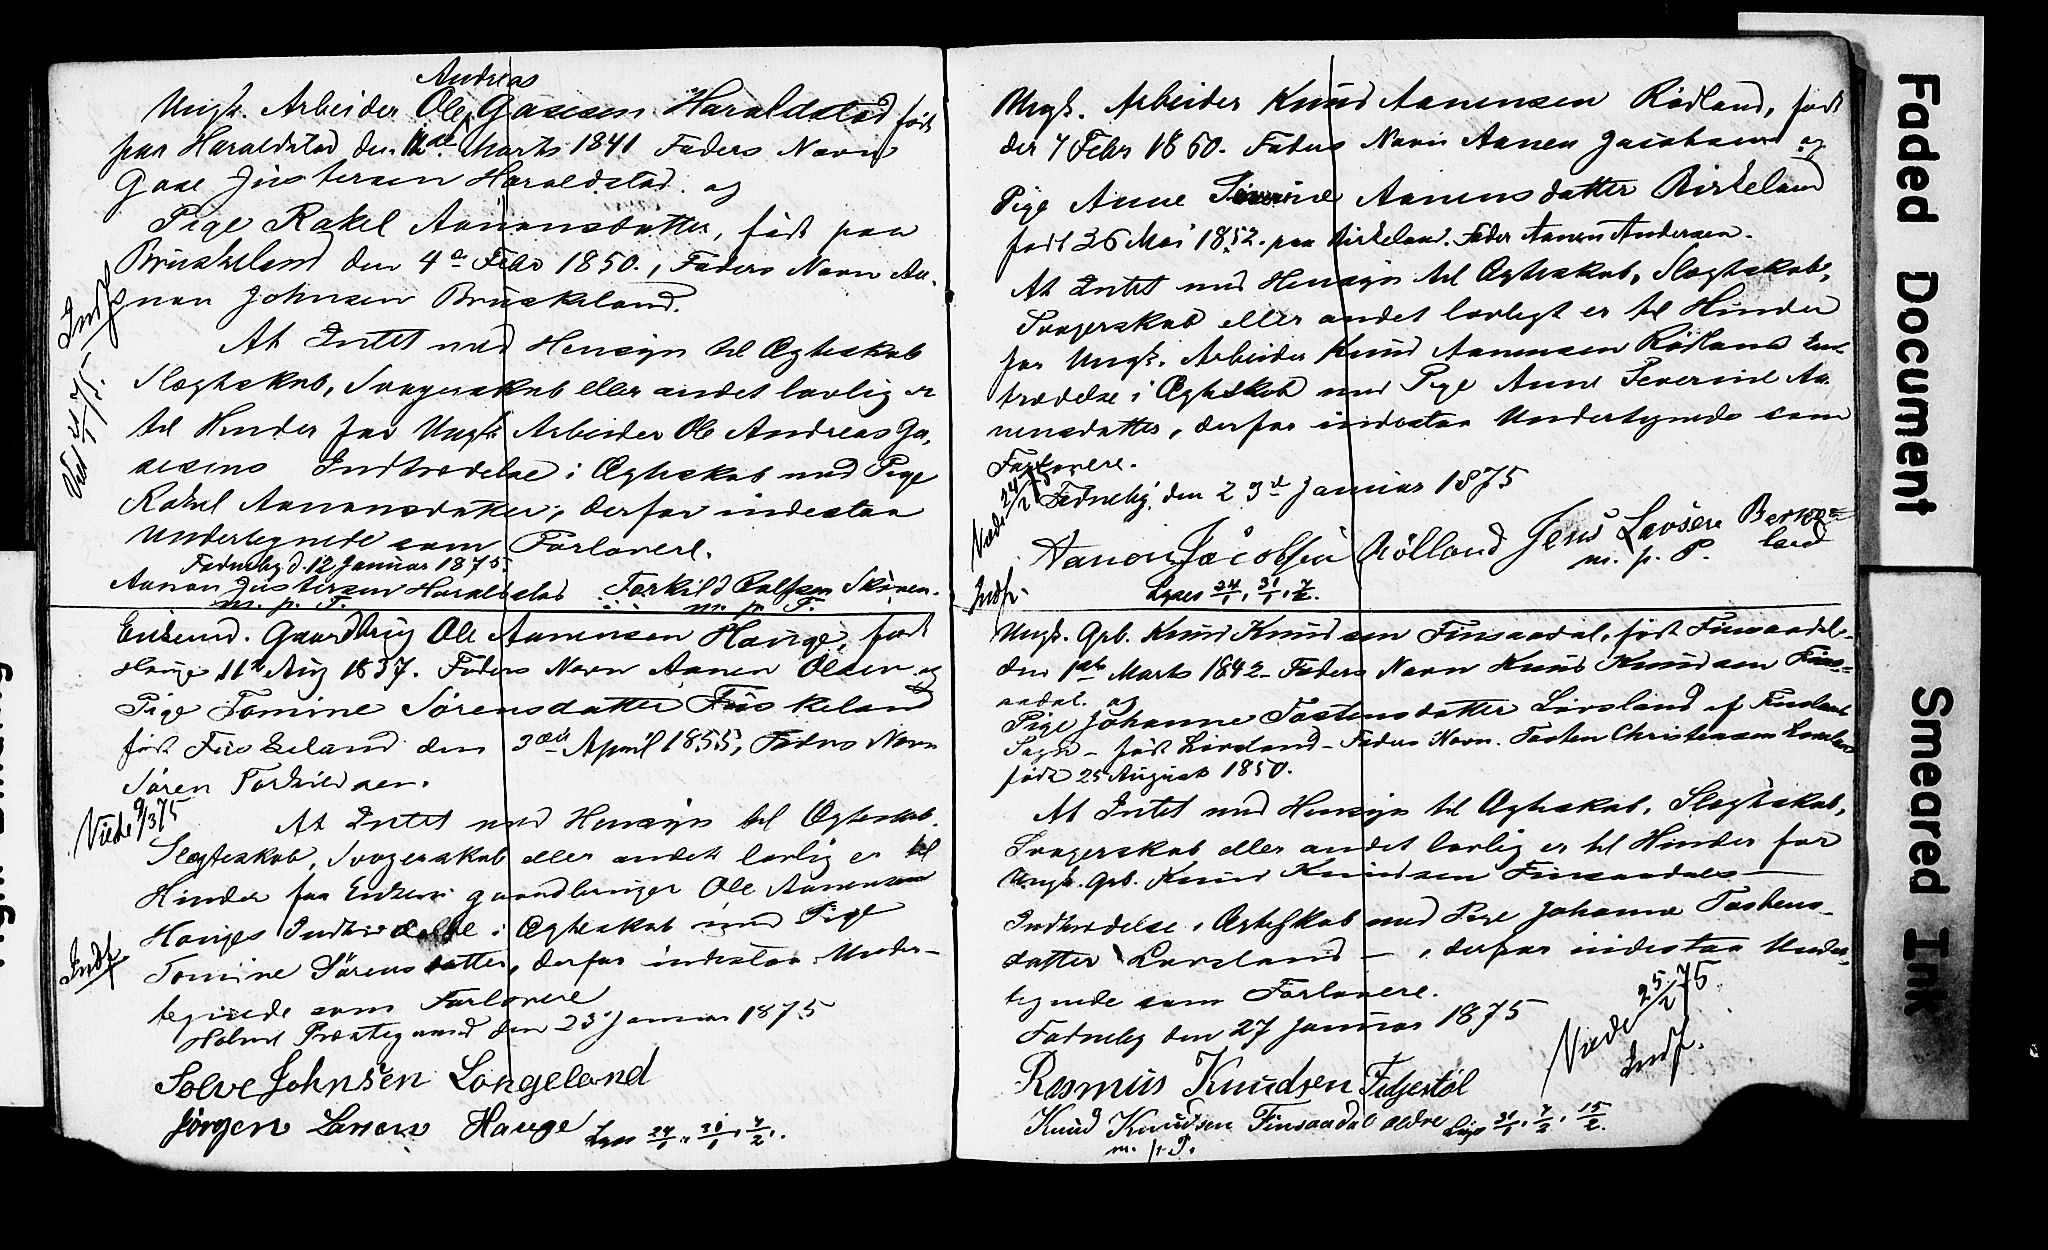 Andreas
Ungk. Arbeider Ole Gaasesen Haraldstad født
paa Haraldstad den Marts 1841 Faders Navn
Gaae Justersen Haraldstad. og
Pige Rakel Aanonsdatter, født paa
Bruskeland den 4de Febr 1850., Faders Navn Aa-
non Johnsen Bruskeland.
Indf
At Intet med Hensyn til Ægteskab
Slægtskab, Svogerskab eller andet lovlig er
til Hinder for Ungk. Arbeider Ole Andreas Ga,
asesens Indtrædelse i Ægteskab med Pige
Rakel Aanonsdatter, derfor indestaa
Undertegnede som Forlovere.
Fædneby d. 12 Januar 1875.
Aanon Justersen Haraldstad Torkild
m. p. P. m. p. P.
Enkemd. Gaardbrug Ole Aanensen Hauge, født
Hauge 11te Aug 1837. Faders Navn Aanen Olsen og
Pige Tomine Sørensdatter Fuskeland
født Fuskeland den 3die April 1855, Faders Navn
Søren Torkildsen.
Viede 9/3 75
At Intet med Hensyn til Ægteskab.
Slægteskab, Svogerskab eller andet lovlig er til
Hinder for Enkem. gaardbruger Ole Aanensen
Hauges Indtrædelse i Ægteskab med Pige
Indf
Tomine Sørensdatter, derfor indestaa Under-
tegnede som Forlovere
Holme Præstegaard den 23 Januar 1875
Salve Johnsen Langeland
Jørgen Hauge Lyses 24/1, 31/1, 7/2.
Ungk. Arbeider Knud Aanensen Rødland, født
den 7 Febr 1850. Faders Navn Aanen Jacobsen og
Pige Anne Severine Aanensdatter Birkeland
født 26 Mai 1852. paa Birkeland. Fader Aanen Andersen.
At Intet med Hensyn til Ægteskab, Slægtskab,
Svogerskab eller andet lovligt er til Hinder
for Ungk. Arbeider Knud Aanensen Rødlands Ind-
trædelse i Ægteskab med Pige Anne Severine Aa
nensdatter, derfor indestaa Undertegnede som
Forlovere.
Fædneby, den 23d Januar 1875
Aanon Jacobsen Rølland Jens Lavsen Berke-
land
m. p. P.
Indf. Lyses 24/1, 31/1, 7/2.
Ungk. Grb. Knud Knudsen Finsaadal, født Finsaadal-
den 1ste Marts 1842- Faders Navn Knud Knudsen Fins-
aadal. og
Pige Johanne Tostensdatter Livsland af
Sogn - født Livsland - Faders Navn. Tosten Christensen
født 25 August 1850.
At Intet med Hensyn til Ægteskab, Slægtskab,
Svogerskab eller andet lovlig er til Hinder for
Ungk. Grb. Knud Knudsen Finsaadals -
Indtrædelse i Ægteskab med Pige Johanne Tostens-
datter Livsland -, derfor indestaa Under-
tegnede som Forlovere.
Fædneby den 27 Januar 1875
Viede 25/2 75
Indf.
Rasmus Knudsen Fidjestøl
Knud Knudsen Finsaadal ældre Lyses 31/1, 7/2, 15/2.
m. p. P.
Faded Document
Smeared Ink